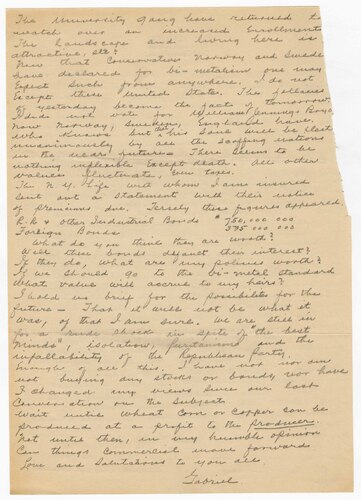 The University gang have returned to
watch over an increased Enrollment
The Landscape and living here is
attractive, etc?
Now that Conservative Norway and Sweden
have declared for bi-metalism one may
Expect such from anywhere, I do not
Except these United States. The fallacies
of yesterday become the fact of tomorrow
I did not vote for William Jennings Bryan
Now Norway, Sweden, England have,
who knows but his Soul will be blest
unanimously by all the scoffing nations
in the near future. There seems to be
nothing inflexible Except death. All other
values fluctuate, Even taxes.
The N.Y. Life with whom I am insured
sent out a Statement with their notice
of premiums due. Thusly these figures appeared.
R.R & other Industrial Bonds $ 750,000 000
Foreign Bonds 335 000 000
What do you think they are worth?
Will these bonds their interest?
If they do, what are my policies worth?
If we should go to the bi-metal standard
What value will accrue to my heirs?
I hold no brief for the possibilities for the
future – That it will not be what it
was, of that I am sure. We are still in
for a rude shock in spite of the "best
minds" isolation, and the
infallability of the Republican Party.
Enough of all this. I have not nor am
not buying any stocks or bonds, nor have
I changed my views since our last
Conversation on the Subject.
Wait until Wheat Corn or Copper can be
produced at a profit to the producer.
Not until then, in my humble opinion
Can things commercial move forward
Love and Salutations to you all
Gabriel